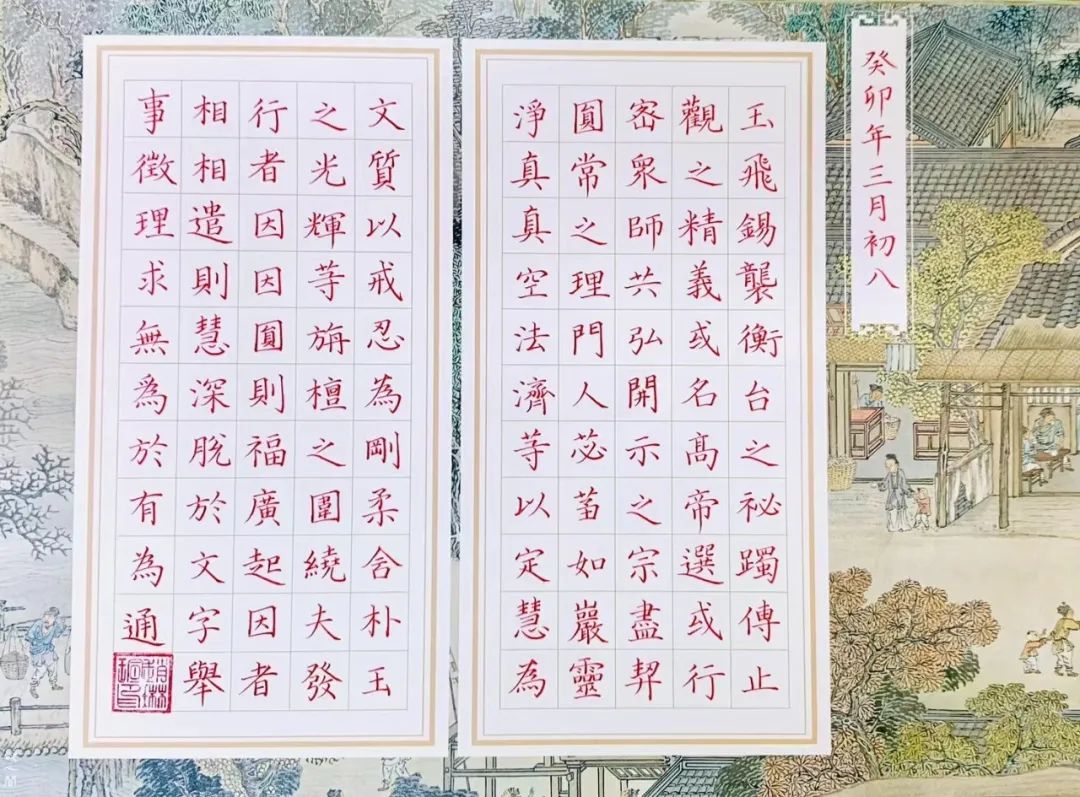 癸卯年三月初八
玉飛錫襲衡台之祕躅傳止
觀之精義或名高帝選或行
密衆師共弘開示之宗盡契
圓常之理門人苾芻如巖靈
淨真真空法濟等以定慧為
文質以戒忍為剛柔含朴玉
之光輝等旃檀之圍繞夫發
行者因因圓則福廣起因者
相相遣則慧深脫於文字舉
事徵理求無爲於有為通